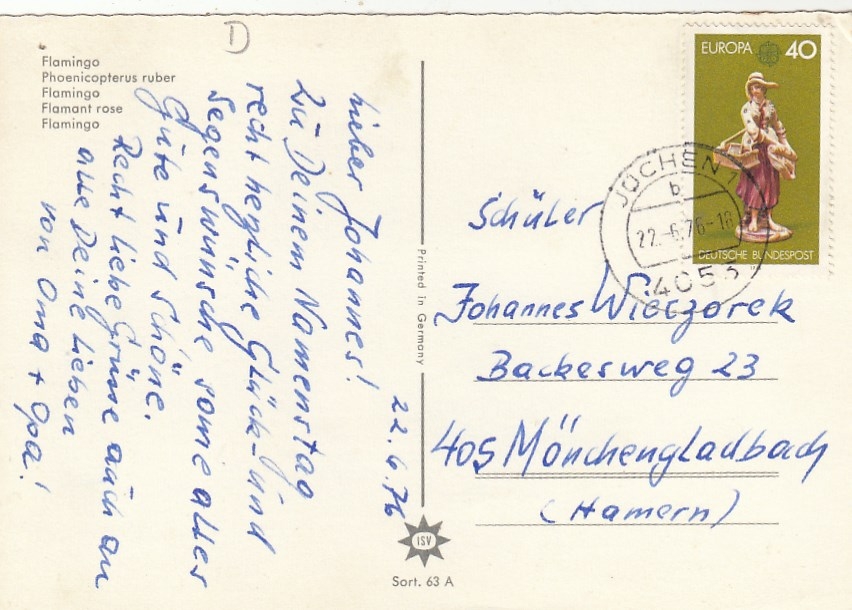 D
Flamingo
Phoenicopterus ruber
Flamingo
Flamant rose
Flamingo
22.6.76
Lieber Johannes!
Zu Deinem Namenstag
recht herzliche Glück- und
Segenswünsche sowie alles
Gute und Schöne.
Recht liebe Grüsse auch an
alle Deine Lieben
von Oma + Opa!
Printed in Germany
ISV
Sort. 63 A
EUROPA 40
DEUTSCHE BUNDESPOST
JÜCHEN 1
b
22.-6.76-18
4053
Schüler
Johannes Wieczorek
Backesweg 23
405 Mönchengladbach
(Hamern)